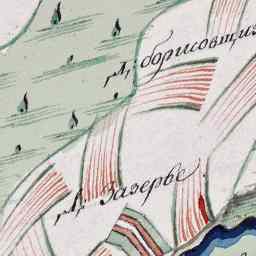 д: борисовщи
д: Зазерье